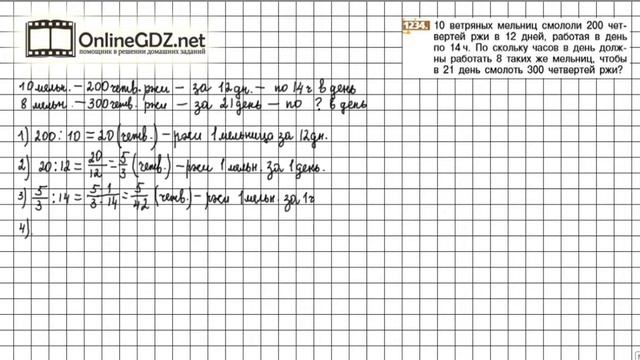 OnlineGDZ.net
помощник в решении домашних заданий
1234. 10 ветряных мельниц смололи 200 чет-
вертей ржи в 12 дней, работая в день
по 14 ч. По скольку часов в день долж-
ны работать 8 таких же мельниц, чтобы
в 21 день смолоть 300 четвертей ржи?
10 мельн. – 200 четв. ржи – за 12 дн. – по 14 ч в день
8 мельн. – 300 четв. ржи – за 21 день – по ? в день
1) 200 : 10 = 20 (четв.) – ржи 1 мельница за 12 дн.
2) 20 : 12 = 20/12 = 5/3 (четв.) – ржи 1 мельн. за 1 день.
3) 5/3 : 14 = 5·1/3·14 = 5/42 (четв.) – ржи 1 мельн. за 1 ч
4)